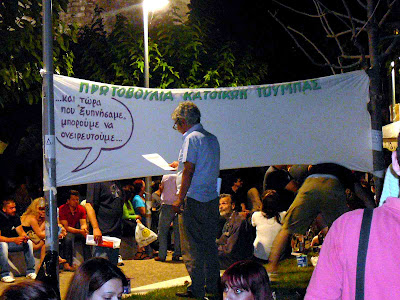 ΠΡΩΤΟΒΟΥΛΙΑ ΚΑΤΟΙΚΩΝ ΤΟΥΜΠΑΣ
...και τώρα
που ξυπνήσαμε,
μπορούμε να
ονειρευτούμε....